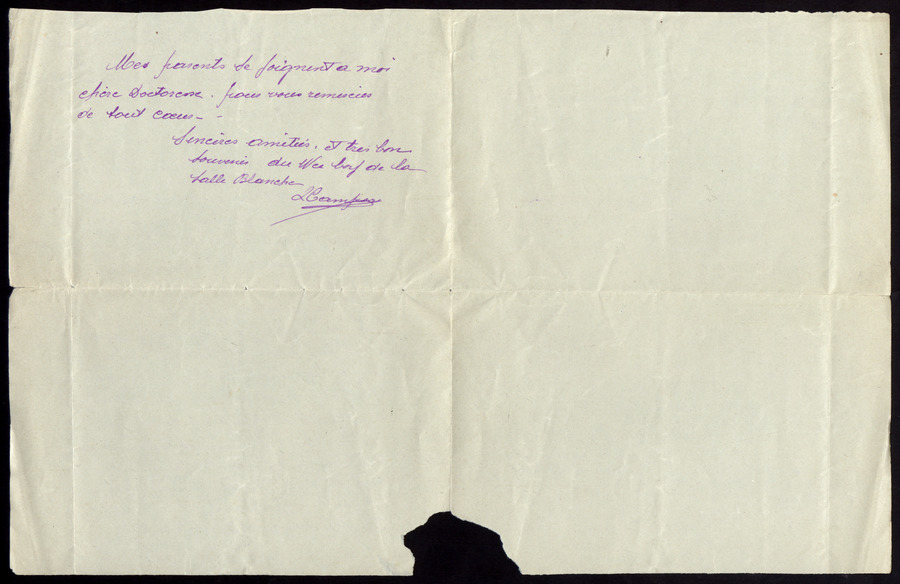 Mes parents se joignent a moi
chère Doctoresse. pour vous remercier
de tout cœur - -
Sincères amitiés. et très bon
souvenir du Wee boy de la
Salle Blanche